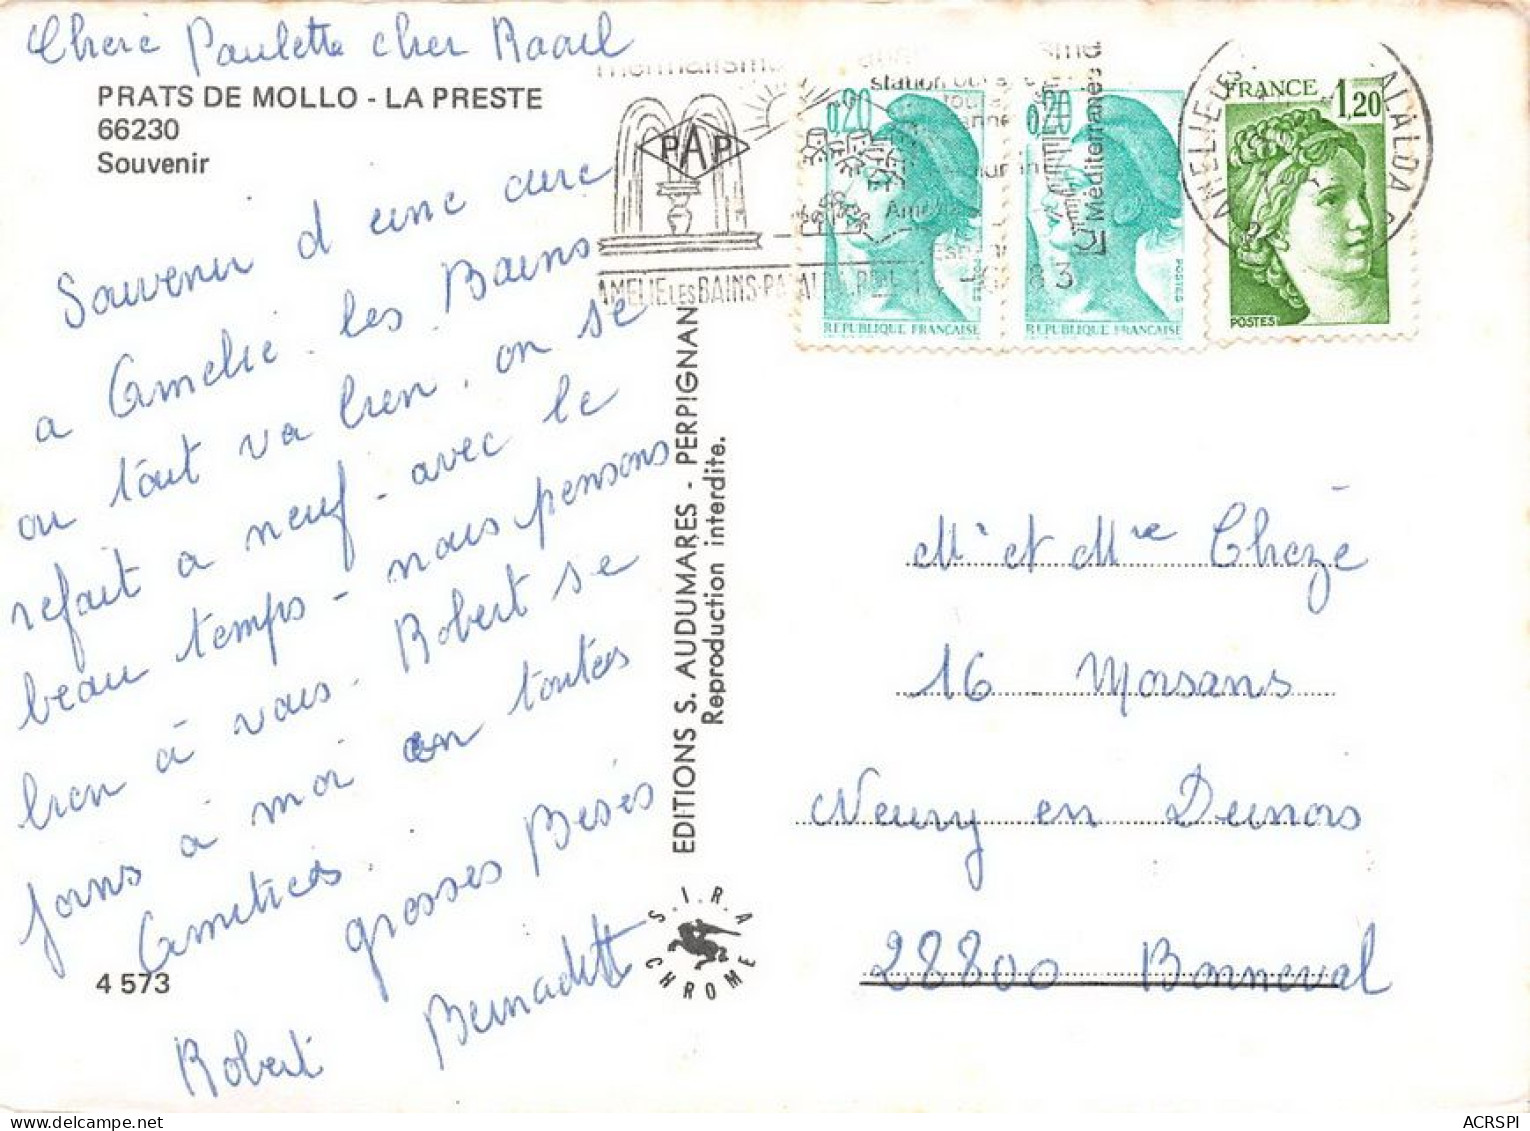 Chere Paulette cher Raoul
PRATS DE MOLLO - LA PRESTE
66230
Souvenir
Souvenir d une cure
a Amelie. les Bains
ou tout va bien. on se
refait a neuf - avec le
beau temps - nous pensons
bien à vous. Robert se
joins à moi en toutes
Amitiés.
grosses Bises
Robert Bernadette
4 573
EDITIONS S. AUDUMARES - PERPIGNAN
Reproduction interdite.
S.I.R.A
CHROME
PAP
AMELIE LES BAINS-PALALDA
station
Méditerranée
83
0,20
REPUBLIQUE FRANÇAISE
POSTES
0,20
REPUBLIQUE FRANÇAISE
POSTES
FRANCE 1,20
POSTES
Mr et Mme Chozé
16 Morsans
Neuvy en Dunois
28800 Bonneval
ACRSPI